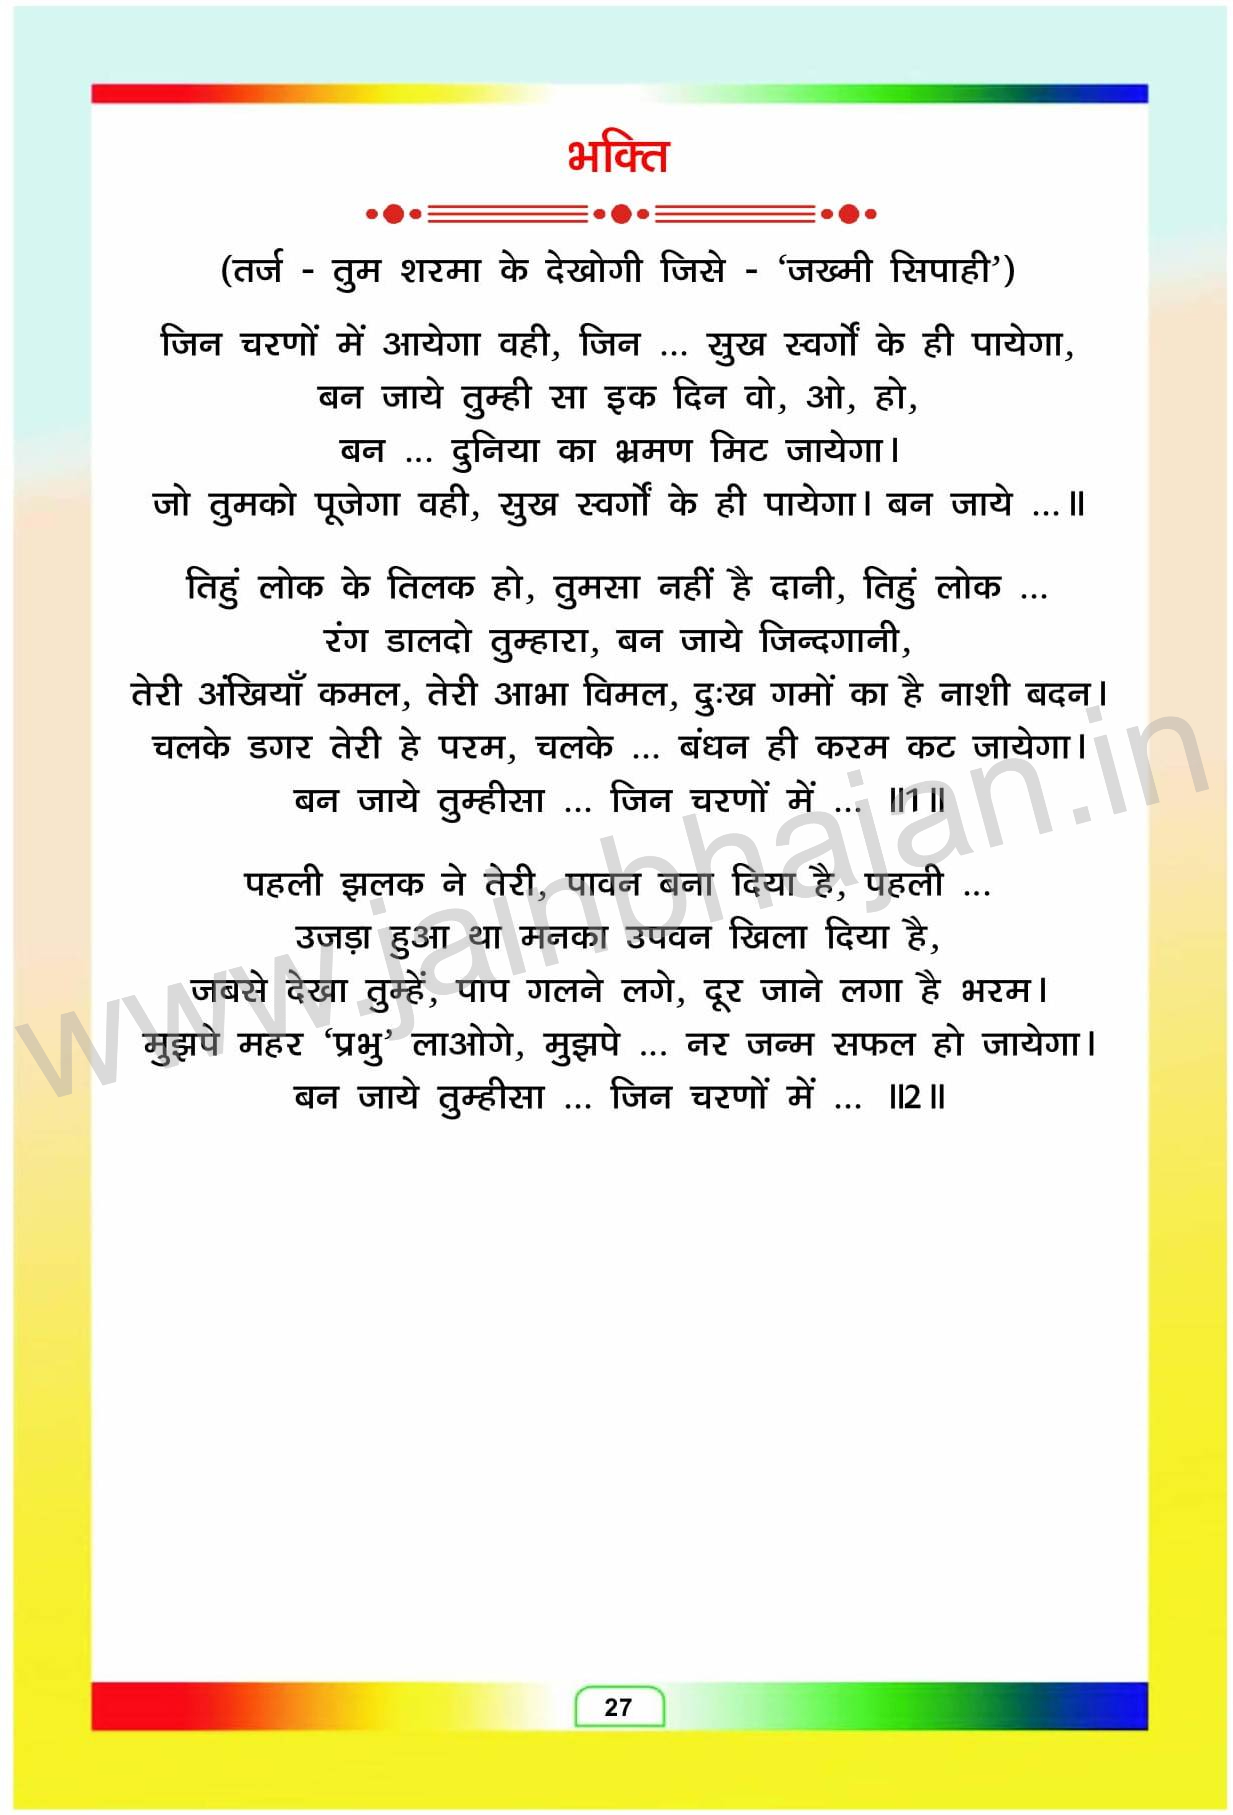 भक्ति
(तर्ज - तुम शरमा के देखोगी जिसे - ‘जख्मी सिपाही’)
जिन चरणों में आयेगा वही, जिन ... सुख स्वर्गों के ही पायेगा,
बन जाये तुम्ही सा इक दिन वो, ओ, हो,
बन ... दुनिया का भ्रमण मिट जायेगा।
जो तुमको पूजेगा वही, सुख स्वर्गों के ही पायेगा। बन जाये ...॥
तिहुं लोक के तिलक हो, तुमसा नहीं है दानी, तिहुं लोक ...
रंग डालदो तुम्हारा, बन जाये जिन्दगानी,
तेरी अंखियाँ कमल, तेरी आभा विमल, दुःख गमों का है नाशी बदन।
चलके डगर तेरी हे परम, चलके ... बंधन ही करम कट जायेगा।
बन जाये तुम्हीसा ... जिन चरणों में ... ॥1॥
पहली झलक ने तेरी, पावन बना दिया है, पहली ...
उजड़ा हुआ था मनका उपवन खिला दिया है,
जबसे देखा तुम्हें, पाप गलने लगे, दूर जाने लगा है भरम।
मुझपे महर ‘प्रभु’ लाओगे, मुझपे ... नर जन्म सफल हो जायेगा।
बन जाये तुम्हीसा ... जिन चरणों में ... ॥2॥
www.jainbhajan.in
27